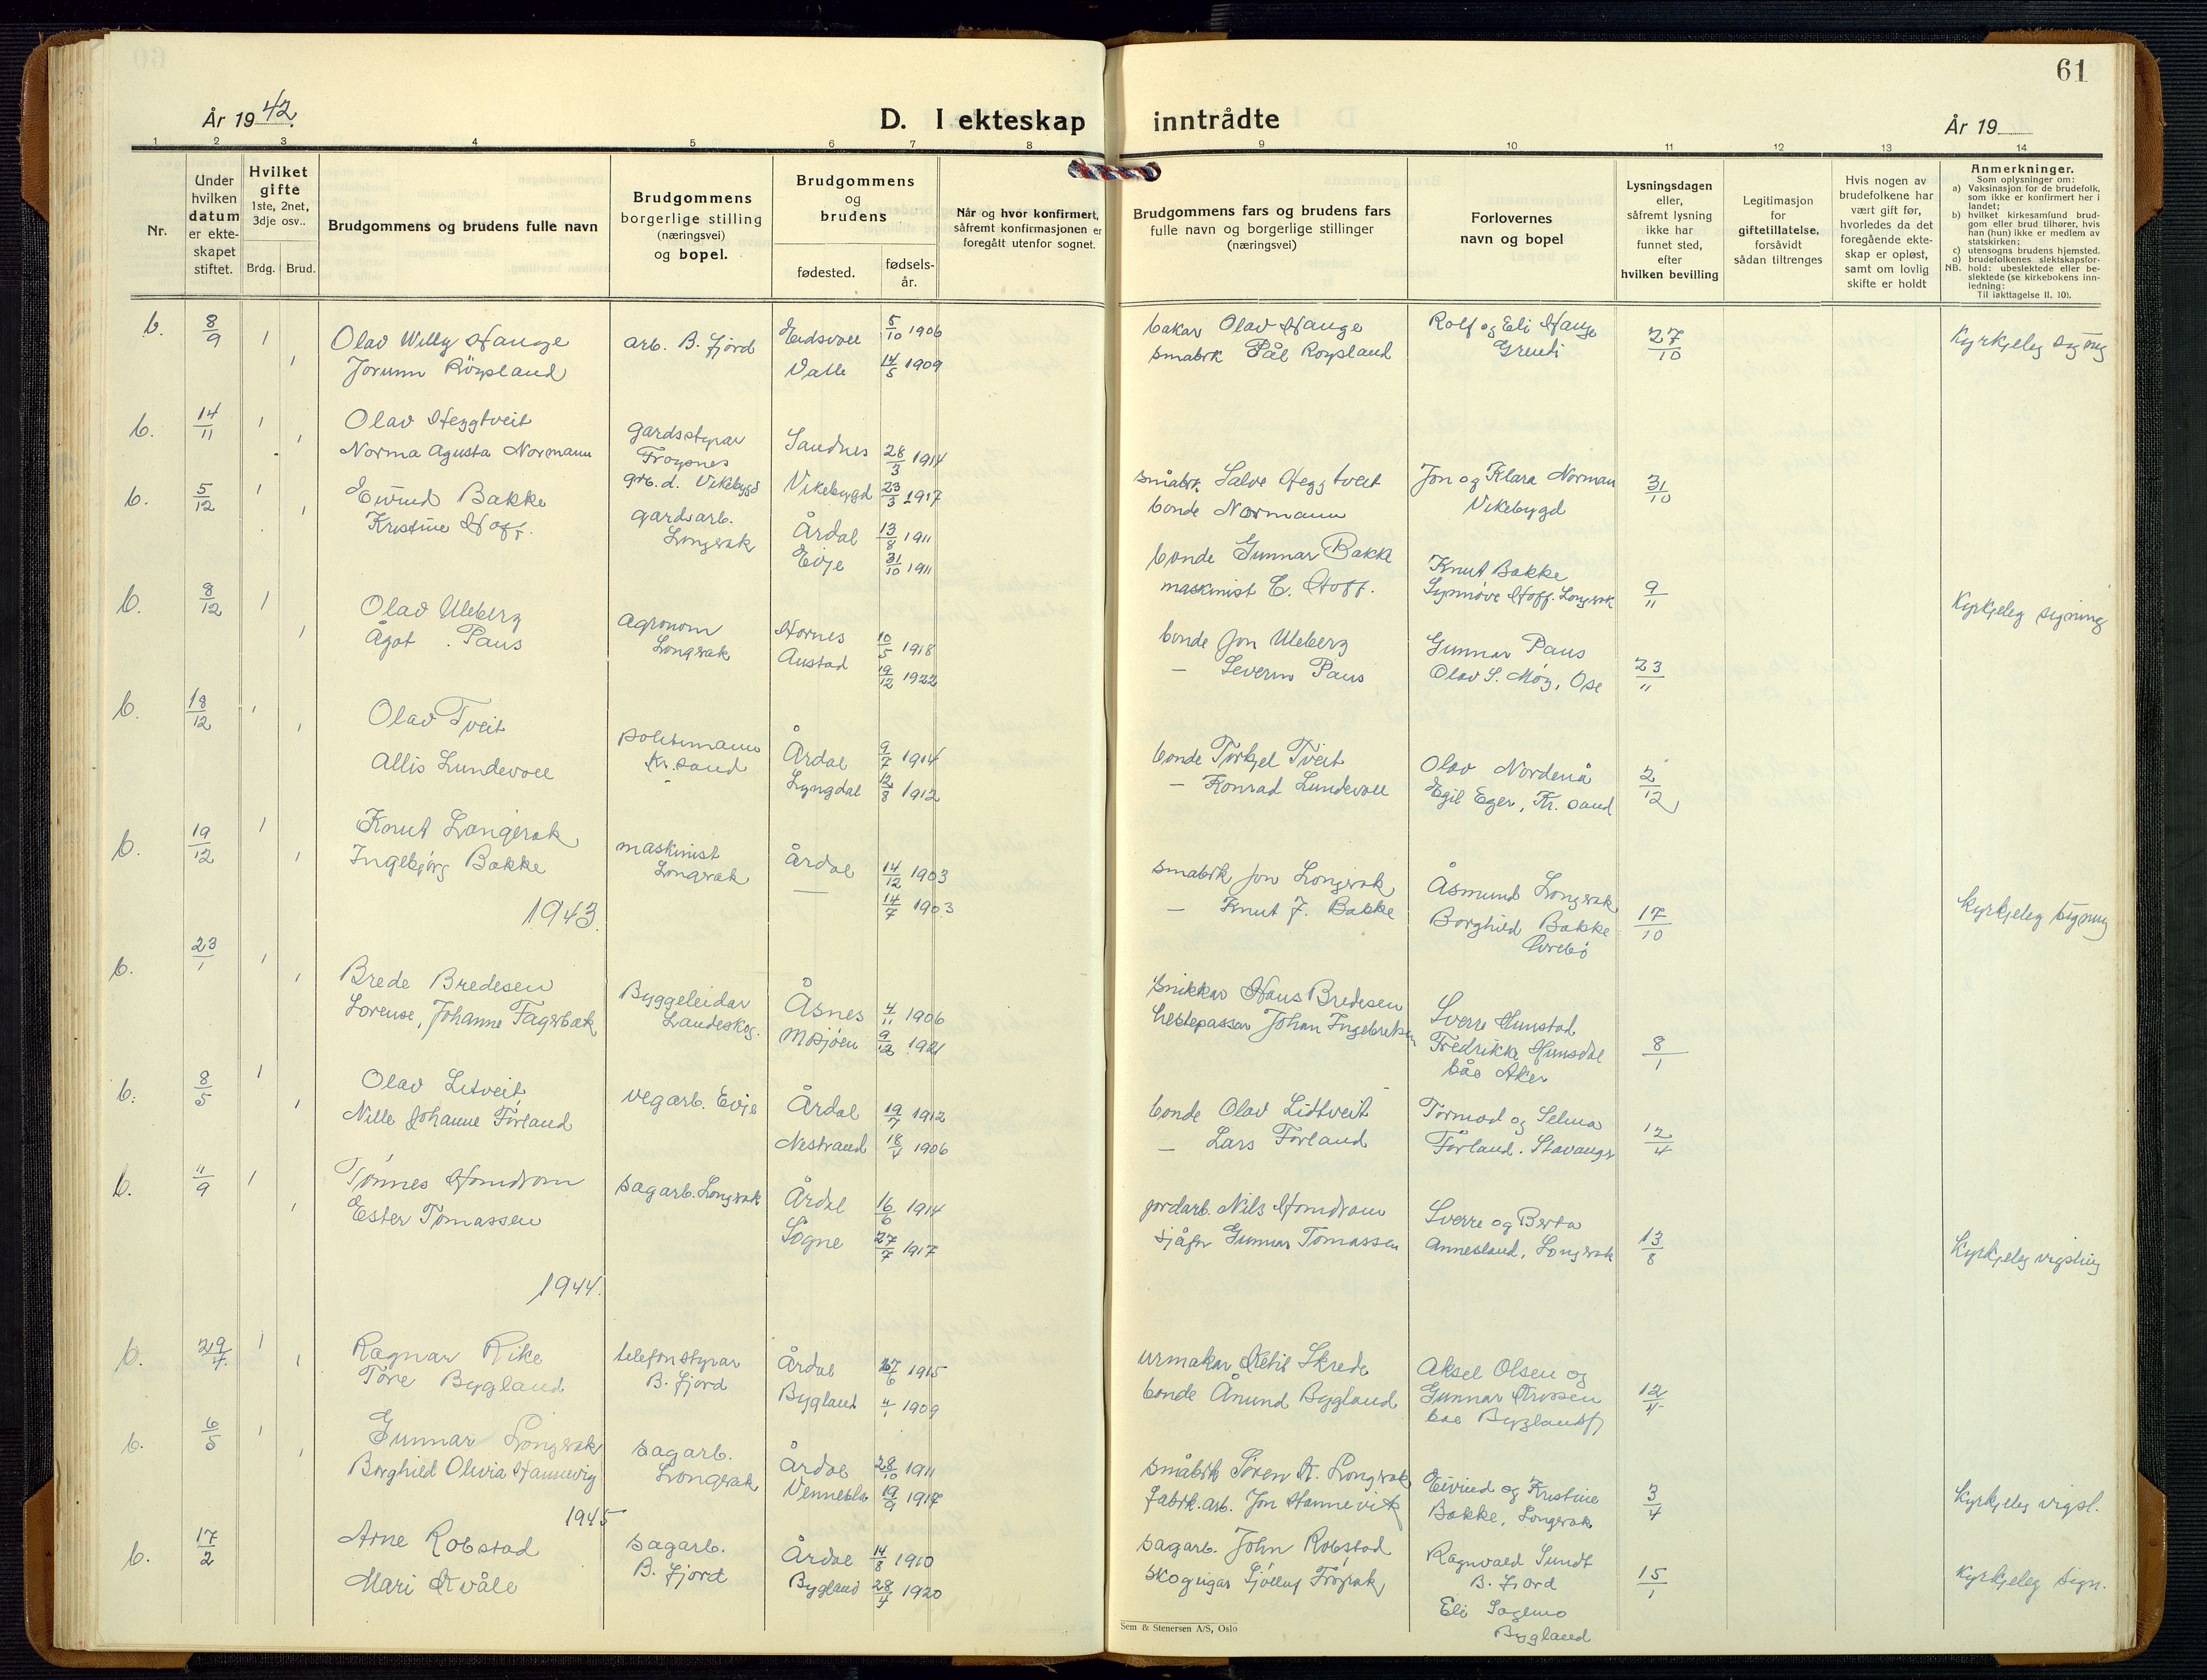 61
År 1942.
D. I ekteskap inntrådte
År 19
1 2 3 4 5 6 7 8 9 10 11 12 13 14
Nr.
Under
hvilken
datum
er ekte-
skapet
stiftet.
Hvilket
gifte
1ste, 2net,
3dje osv..
Brdg. Brud.
Brudgommens og brudens fulle navn
Brudgommens
borgerlige stilling
(næringsvei)
og bopel.
Brudgommens
og
brudens
fødested.
fødsels-
år.
Når og hvor konfirmert,
såfremt konfirmasjonen er
foregått utenfor sognet.
Brudgommens fars og brudens fars
fulle navn og borgerlige stillinger
(næringsvei)
Forlovernes
navn og bopel
Lysningsdagen
eller,
såfremt lysning
ikke har
funnet sted,
efter
hvilken bevilling
Legitimasjon
for
giftetillatelse,
forsåvidt
sådan tiltrenges
Hvis nogen av
brudefolkene har
vært gift før,
hvorledes da det
foregående ekte-
skap er opløst,
samt om lovlig
skifte er holdt
Anmerkninger.
Som oplysninger om:
a) Vaksinasjon for de brudefolk,
som ikke er konfirmert her i
landet;
b) hvilket kirkesamfund brud-
gom eller brud tilhører, hvis
han (hun) ikke er medlem av
statskirken;
c) utensogns brudens hjemsted.
d) brudefolkenes slektskapsfor-
NB. hold: ubeslektede eller be-
slektede (se kirkebokens inn-
ledning:
Til iakttagelse II. 10).
b. 8/9 1 Olav Willy Hauge arb. B. fjord Eidsvoll 5/10 1906 bakar Olav Hauge Rolf og Eli Hauge 27/10 Kyrkjeleg signing
1 Jorunn Röysland Valle 14/5 1909 småbrk Pål Roysland Grendi
b. 14/11 1 Olav Heggtveit gardsstyrar Sandnes 28/3 1914 småbr. Salve Heggtveit Jon og Klara Norman 31/10
1 Norma Agusta Normann Froysnes
grb. d. Vikebygd Vikebygd 23/3 1917 bonde Normann Vikebygd
b. 5/12 1 Eivind Bakke gardsarb. Årdal 13/8 1911 bonde Gunnar Bakke Knut Bakke 9/11
1 Kristine Hoff. Longerak Evje 31/10 1911 maskinist E. Hoff. Synnøve Hoff. Longerak
b. 8/12 1 Olav Uleberg agronom Hornes 10/5 1918 bonde Jon Uleberg Gunnar Paus 23/11 Kyrkjeleg signing
1 Ågot Paus Longerak Austad 19/12 1922 — Severin Paus Olav S. Moy, Ose
b. 18/12 1 Olav Tveit politimann Årdal 9/7 1914 bonde Torkjel Tveit Olav Nordenå 2/12
1 Allis Lundevoll Kr. sand Lyngdal 12/8 1912 — Konrad Lundevoll Egil Eger, Kr. sand
b. 19/12 1 Knut Langerak maskinist Årdal 14/12 1903 småbrk Jon Longerak Åsmund Longerak 17/10 Kyrkjeleg signing
1 Ingebjørg Bakke Longerak — 14/7 1903 — Knut J. Bakke Borghild Bakke
1943.
b. 23/1 1 Brede Bredesen Byggeleidar Åsnes 4/11 1906 snikkar Hans Bredesen Sverre Hunstad 8/1
1 Lorense, Johanne Fagerbæk Landeskog. Mosjøen 9/12 1921 hestepasser Johan Ingebretsen Fredrikke Hunsdal
båe Aker
b. 8/5 1 Olav Litveit vegarb. Evje Årdal 19/7 1912 bonde Olav Lidtveit Tormod og Selma 12/4
1 Nille Johanne Førland Nestrand 18/4 1906 — Lars Førland Førland. Stavanger
b. 11/9 1 Tønnes Homdrom sagarb. Longerak Årdal 16/6 1914 jordarb. Nils Homdrom Sverre og Berta 13/8 Kyrkjeleg vigsling
1 Ester Tomassen Søgne 27/7 1917 sjåfør Gunnar Tomassen Annesland, Longerak
1944.
b. 29/4. 1 Ragnar Rike telefonstyrar Årdal 27/6 1915 urmakar Ketil Skrede Aksel Olsen og 12/4
1 Tore Bygland B. fjord Bygland 4/1 1909 bonde Ånund Bygland Gunnar
båe Byglandsfj
b. 6/5 1 Gunnar Longerak sagarb. Årdal 28/10 1911 småbrk Søren A. Longerak Eivind og Kristine 3/4 Kyrkjeleg vigsl.
1 Borghild Olivia Hannevig Longerak Vennesla 19/9 1917 fabrk. arb. Jon Hannevik Bakke, Longerak
1945
b. 17/2 Arne Robstad sagarb. Årdal 14/8 1910 sagarb. John Robstad Ragnvald Sundt 15/1 Kyrkjeleg sign.
Mari Kvåle B. fjord Bygland 28/4 1920 skogeigar B. Fjord
Eli Sagemo
Bygland
Sem & Stenersen A/S, Oslo